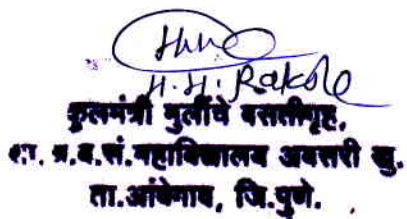 H.H. Rakshe
कुलमंत्री मुलींचे वसतीगृह,
शा. श्र.व.सं.महाविद्यालय अवसरी खु.
ता.आंबेगाव, जि.पुणे.